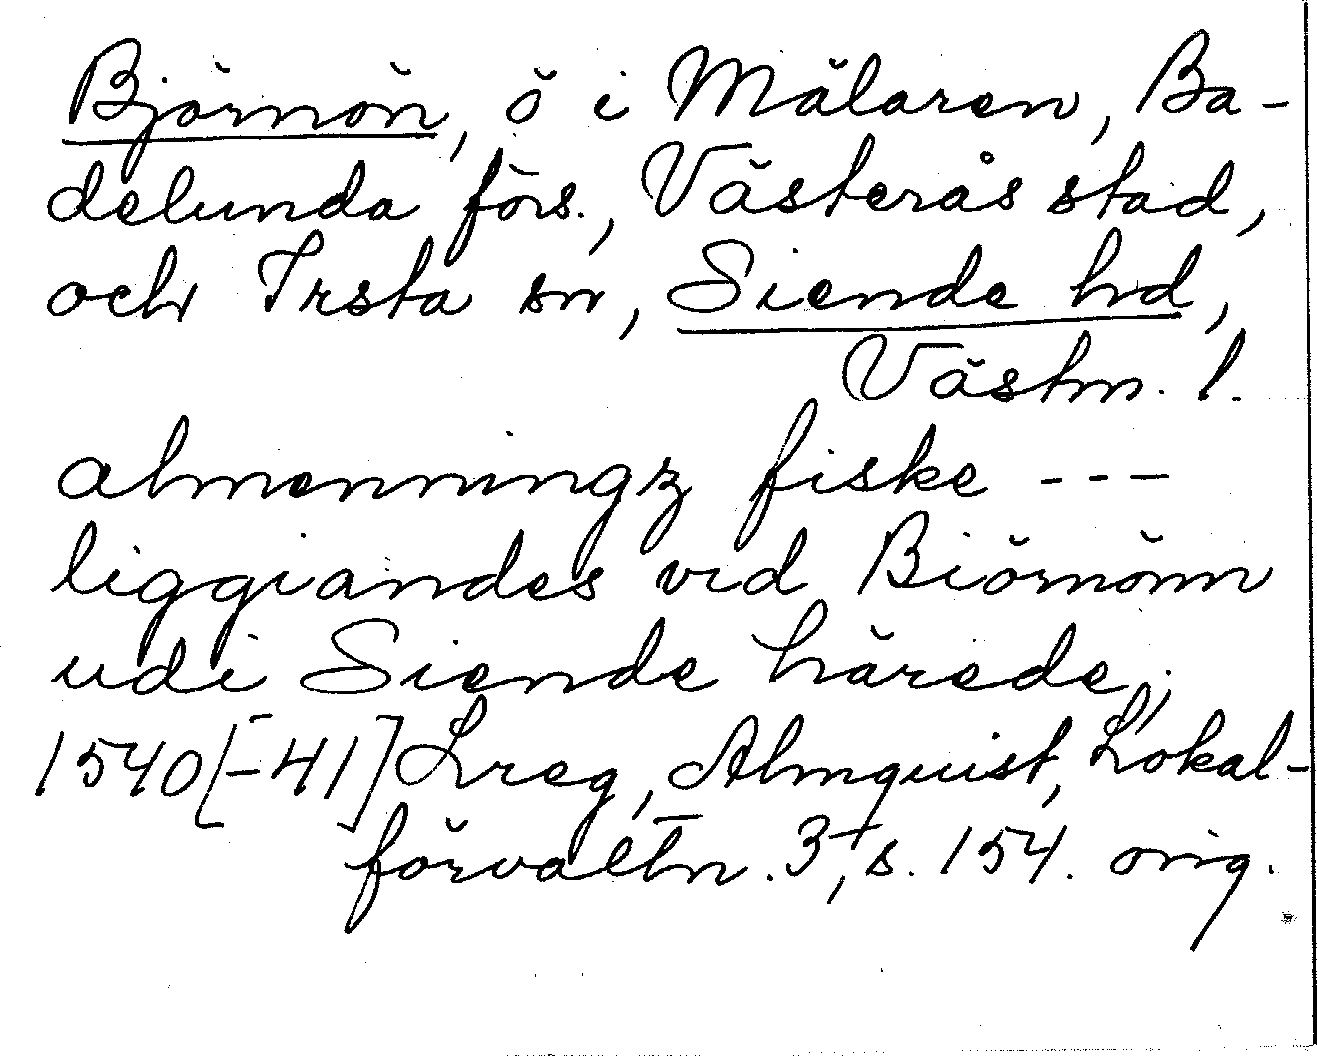 Björnön, ö i Mälaren, Ba-
delunda förs., Västerås stad,
och Irsta sn, Siende hd,
Västm. l.
almenningz fiske ---
liggiandes vid Biörnönn
udi Siende härede,;
1540[-41] Lreg, Almquist, Lokal-
förvaltn. 3, s. 154. orig.